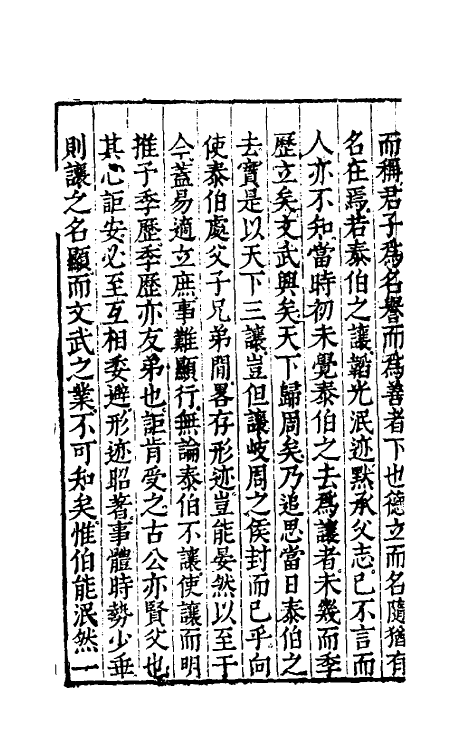 而稱君子爲名譽而爲善者下也德立而名隨猶有
名在焉若泰伯之讓韜光泯迹默承父志已不言而
人亦不知當時初未覺泰伯之去爲讓者未幾而季
歷立矣文武興矣天下歸周矣乃追思當日泰伯之
去實是以天下三讓豈但讓岐周之侯封而已乎向
使泰伯處父子兄弟間畧存形迹豈能晏然以至于
今蓋易適立庶事難顯行無論泰伯不讓使讓而明
推于季歷季歷亦友弟也詎肯受之古公亦賢父也
其心詎安必至互相委避形迹昭著事體時勢少乖
則讓之名顯而文武之業不可知矣惟伯能泯然一